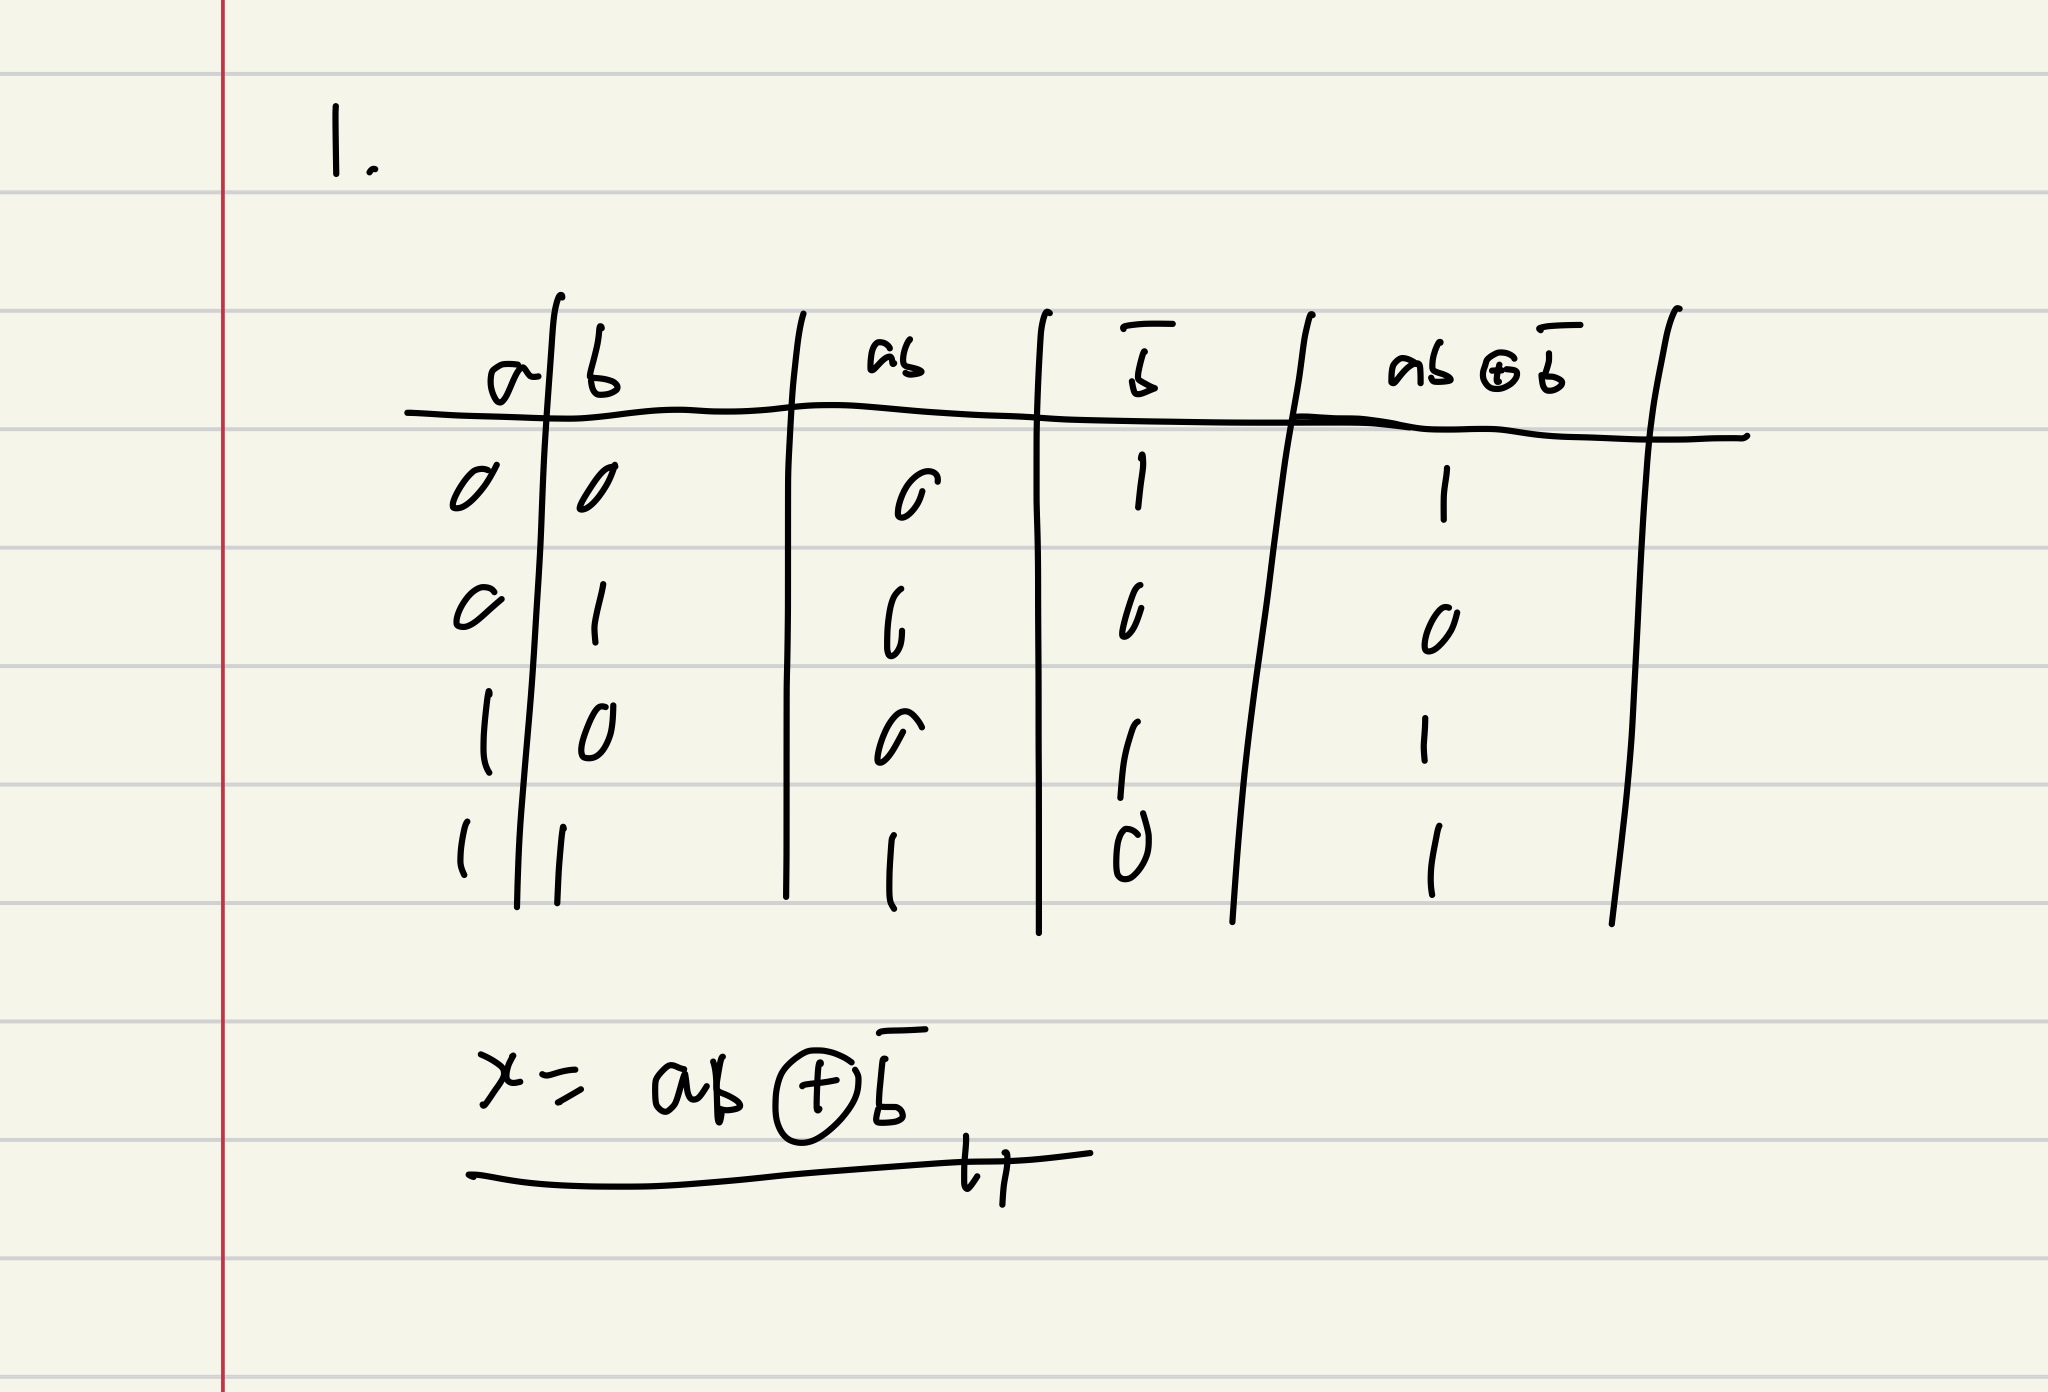 1.
a b ab b̅ ab ⊕ b̅
0 0 0 1 1
0 1 0 0 0
1 0 0 1 1
1 1 1 0 1
x = ab ⊕ b̅